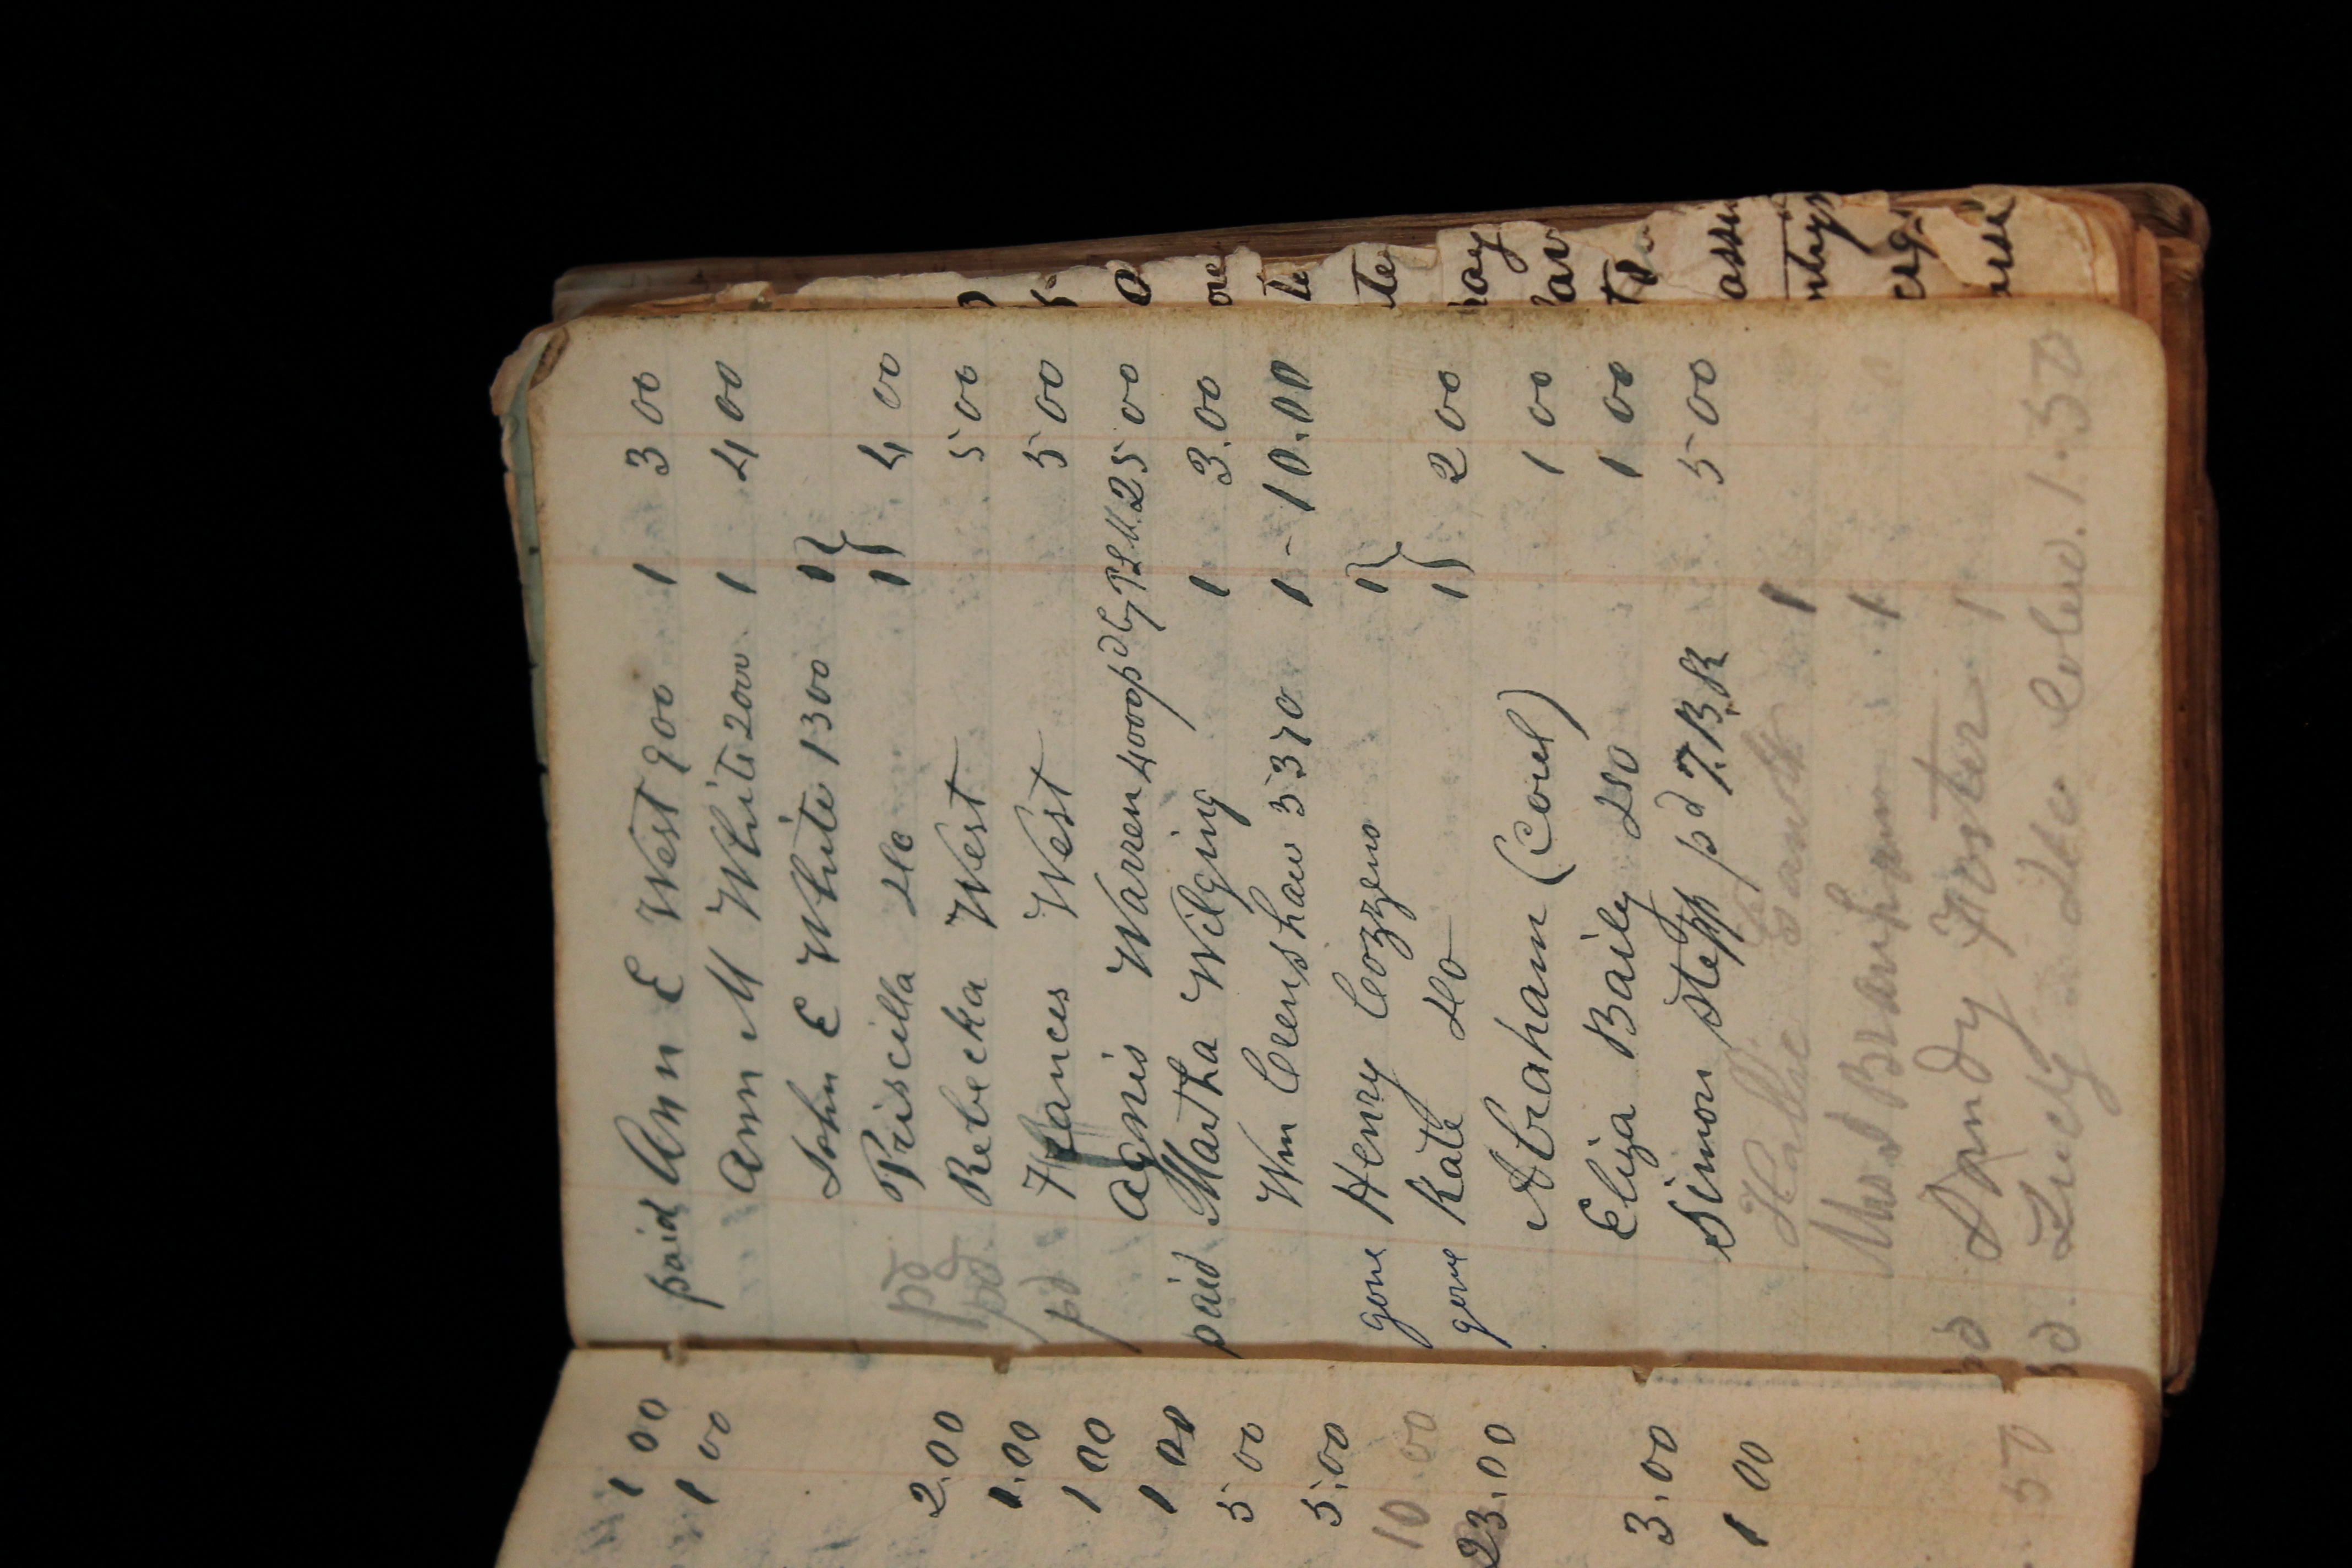 1 00
1 00
2.00
1.00
1 00
1 00
5 00
5.00
10.00
23.00
3.00
1 00
50
paid Ann E West 900 1 3 00
Ann M White 2000 1 4 00
John E White 1300 1
pd Priscilla do 1 4 00
pd Rebecka West 5 00
pd Frances West 5 00
Agnis Warren 4000 pd by 25 00
paid Martha Wilging 1 3.00
Wm Crenshaw 5370 1 - 10.00
gone Henry Cozzens 1
gone Kate do 1 2 00
Abraham (Cold) 1 00
Eliza Baily do 1 00
Simon Stepp pd T.B.R 5 00
Hallie Gantt 1
Mrs J Branham 1
pd Dandy Foster 1
pd. Lucy do Cold. 1.50